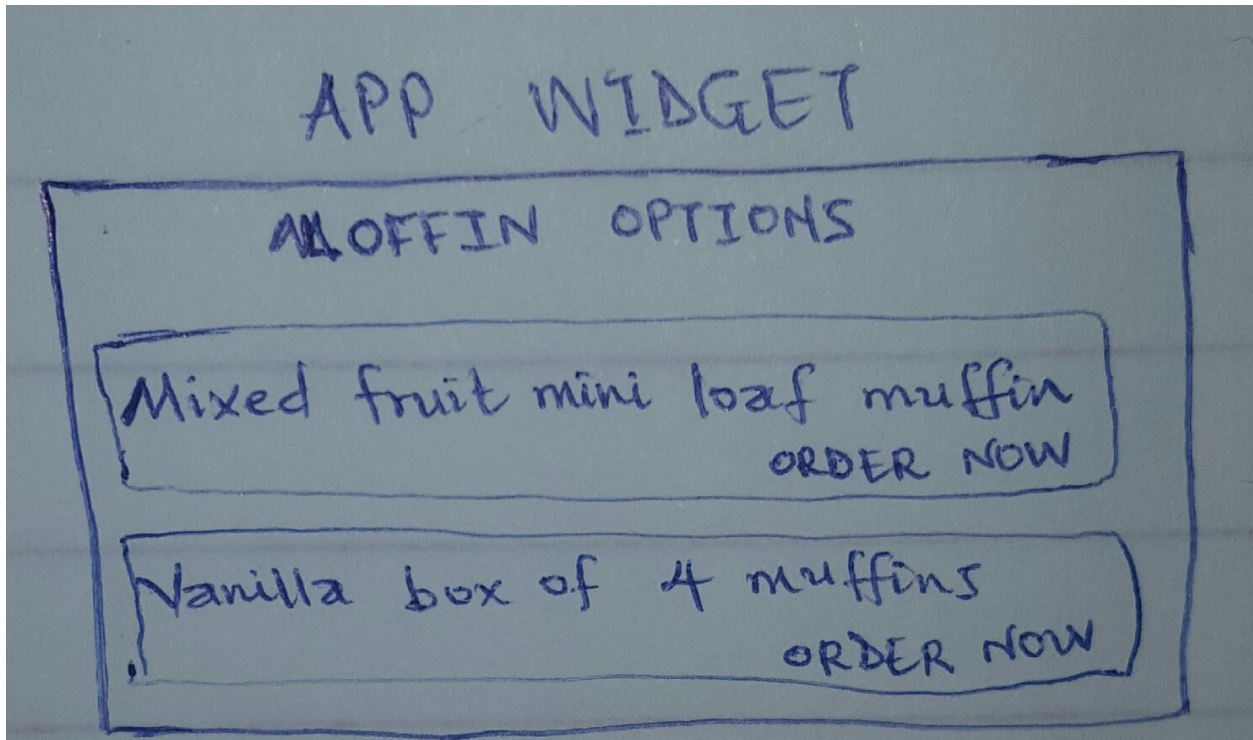 APP WIDGET
MOFFIN OPTIONS
Mixed fruit mini loaf muffin
ORDER NOW
Vanilla box of 4 muffins
ORDER NOW